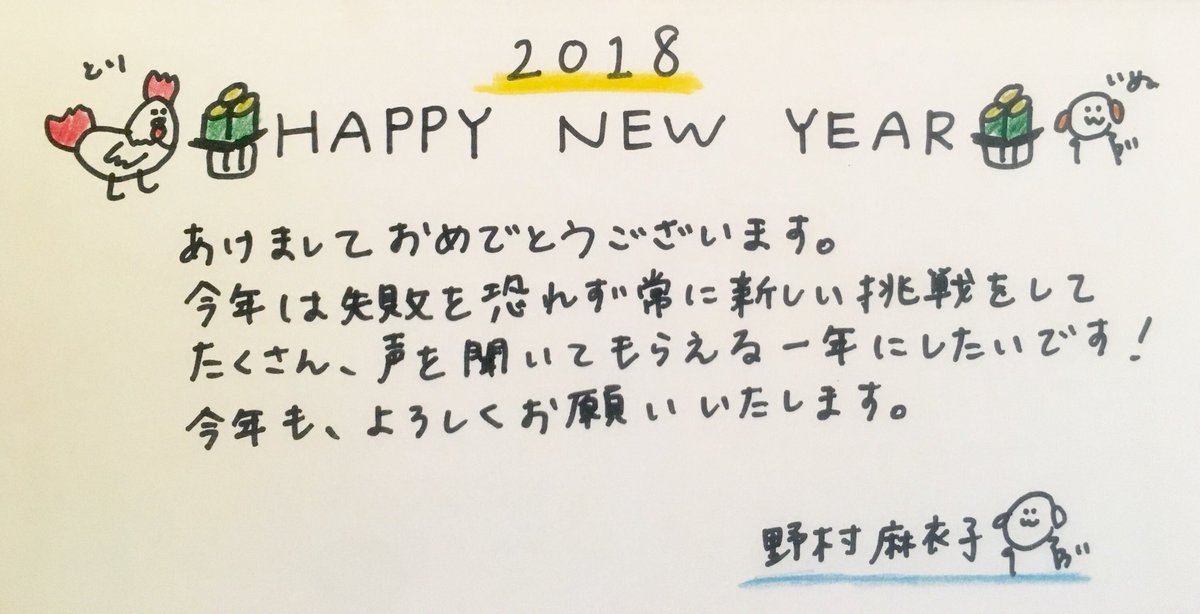 2018
とり
いぬ
HAPPY NEW YEAR
あけましておめでとうございます。
今年は失敗を恐れず常に新しい挑戦をして
たくさん、声を聞いてもらえる一年にしたいです!
今年も、よろしくお願いいたします。
野村麻衣子